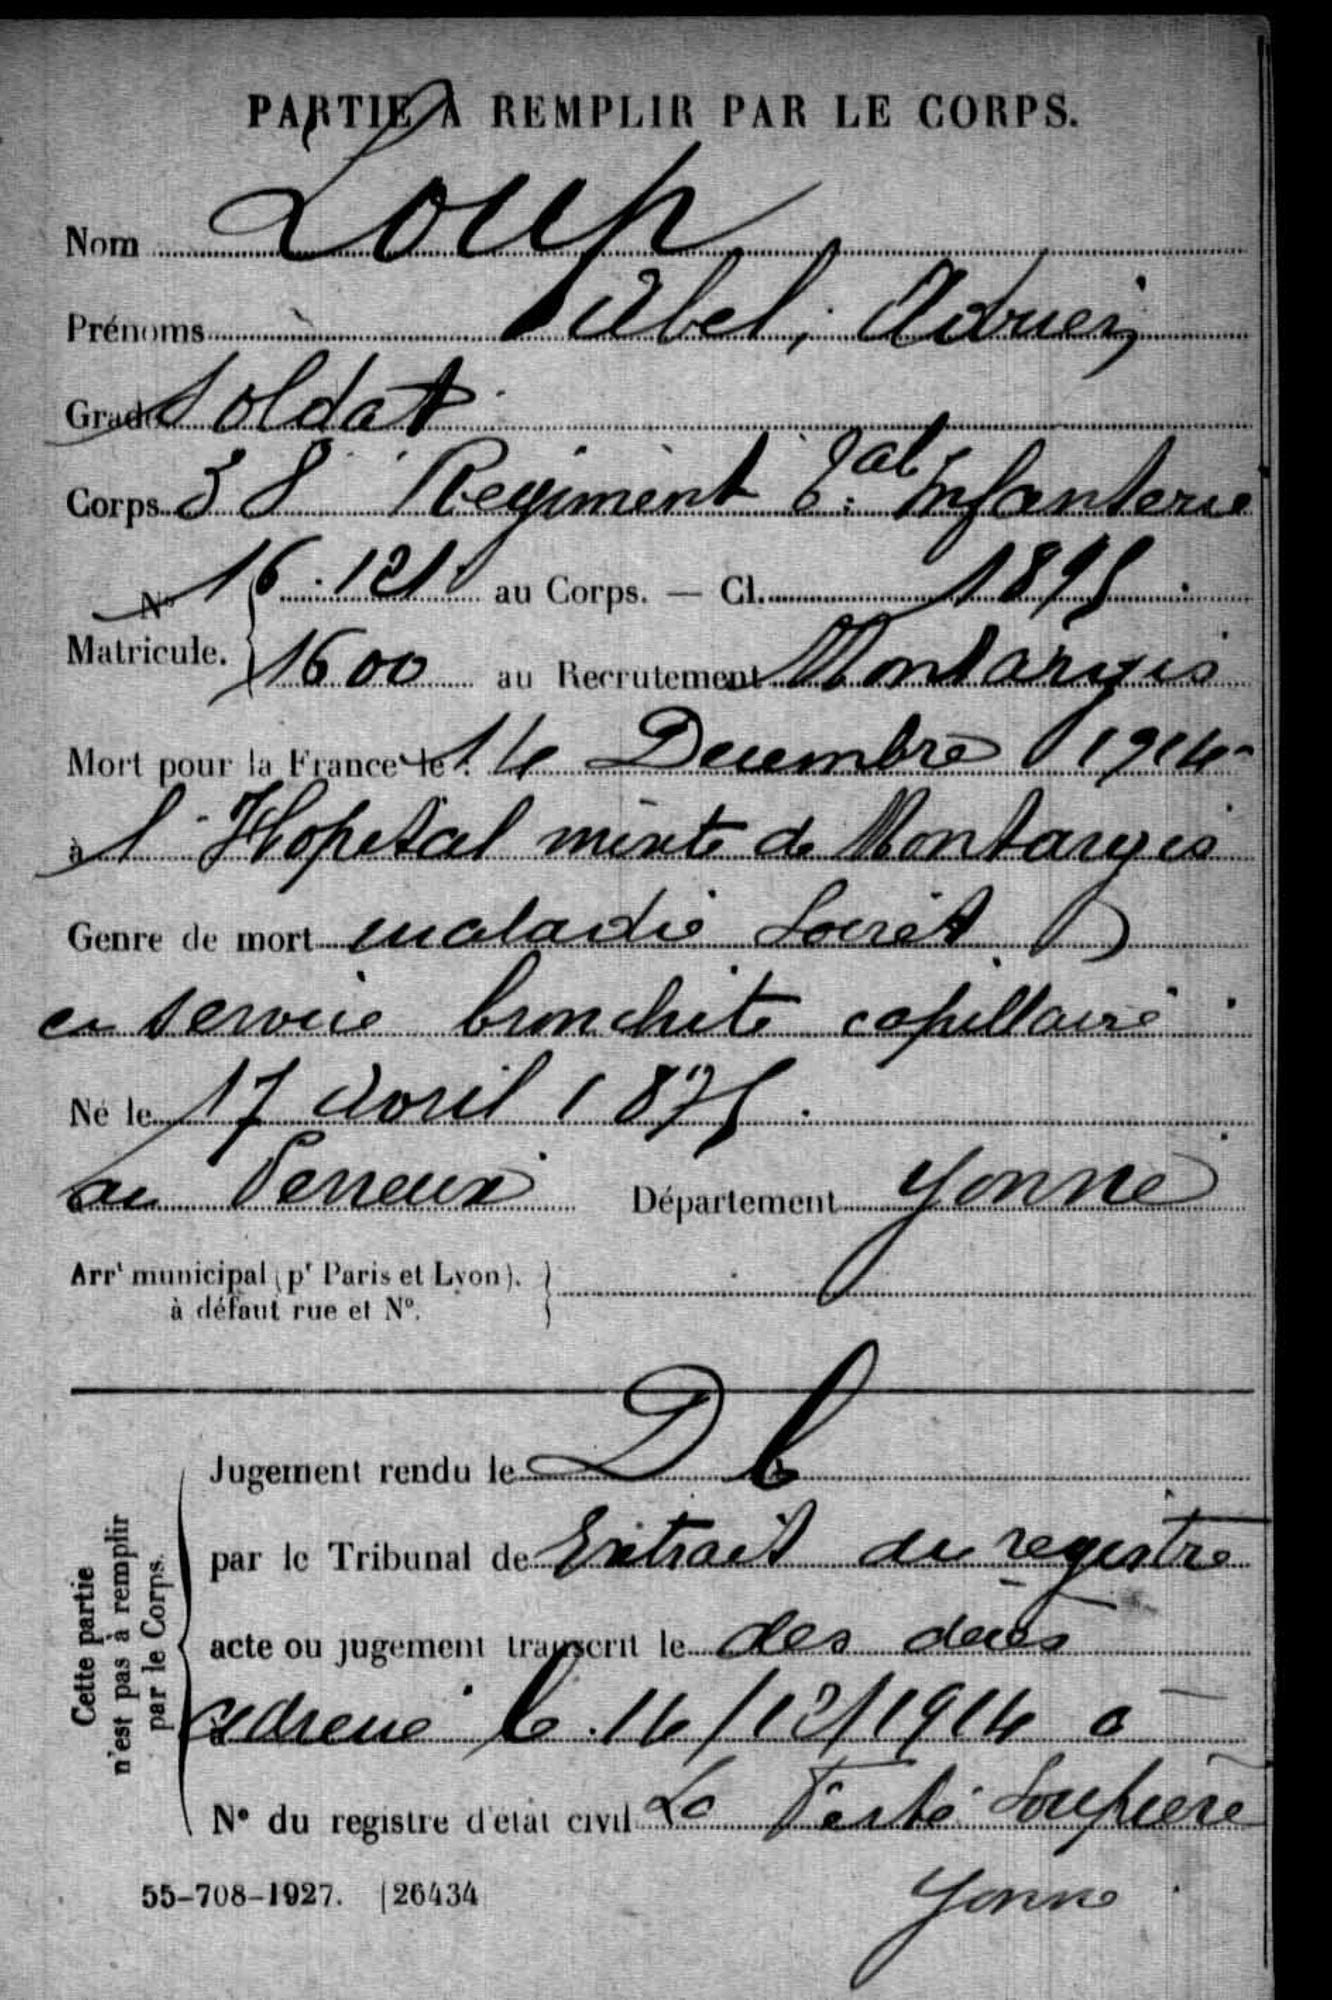 PARTIE À REMPLIR PAR LE CORPS.
Nom Loup
Prénoms Abel, Adrien
Grade Soldat
Corps 38 Régiment tal Infanterie
No 16.121 au Corps. — Cl. 1895
Matricule. 1600 au Recrutement Montargis
Mort pour la France le 14 Décembre 1914
à l'Hopital mixte de Montargis
Genre de mort maladie Loiret
en service bronchite capillaire
Né le 17 Avril 1875
au Perreux Département Yonne
Arrt municipal (pr Paris et Lyon).
à défaut rue et No.
Jugement rendu le D C
par le Tribunal de Extrait du registre
acte ou jugement transcrit le des décès
adressé le 14/12/1914 a
No du registre d'état civil La Ferté Loupière
Yonne
Cette partie
n'est pas à remplir
par le Corps.
55-708-1927. [26434